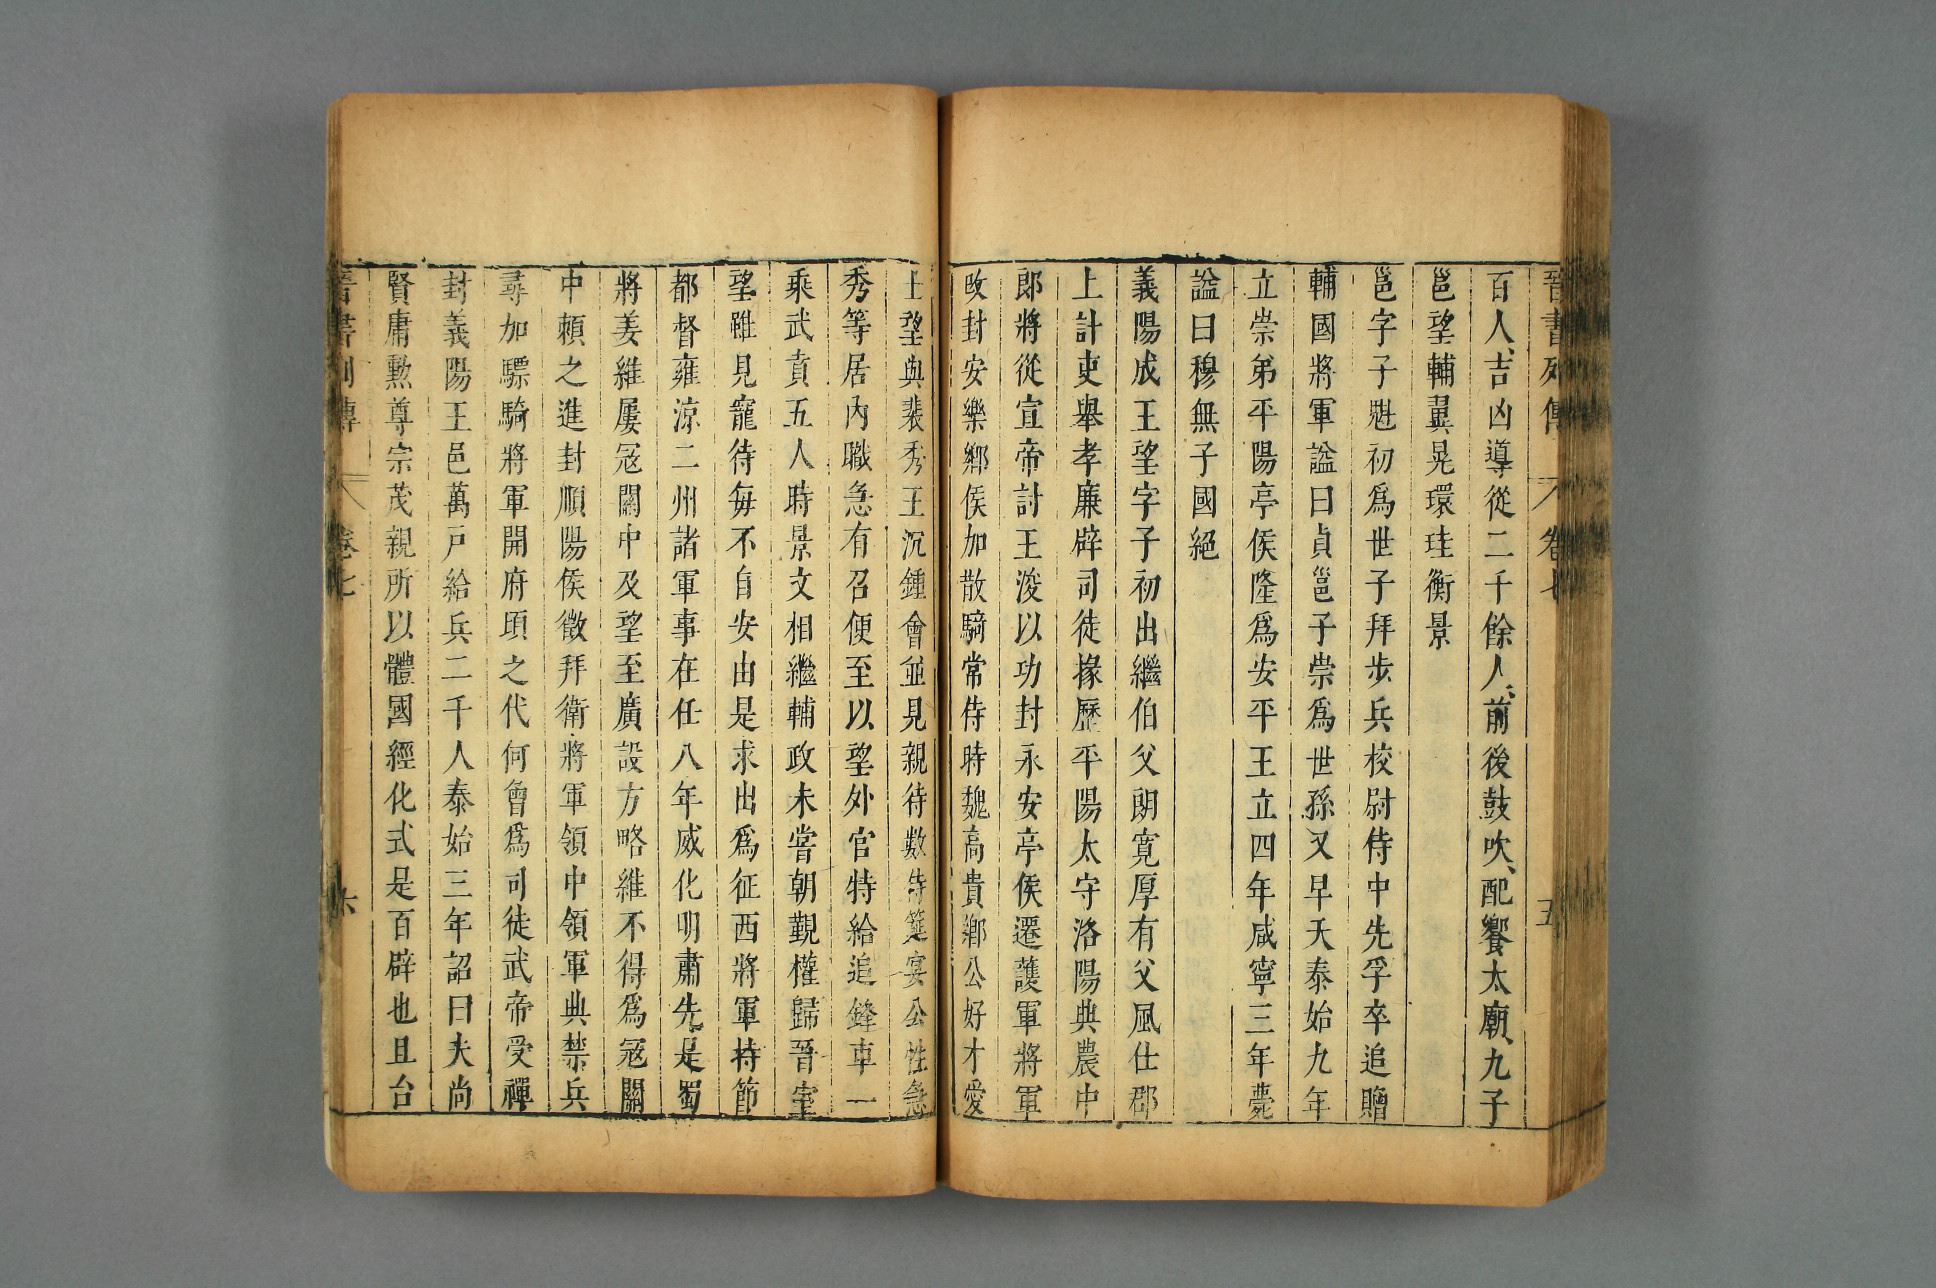 晉書列傳 卷七 五
百人吉凶導從二千餘人前後鼓吹配饗太廟九子
邕望輔翼晃瓌珪衡景
邕字子魁初爲世子拜步兵校尉侍中先孚卒追贈
輔國將軍諡曰貞邕子崇爲世孫又早夭泰始九年
立崇弟平陽亭侯隆爲安平王立四年咸寧三年薨
諡曰穆無子國絕
義陽成王望字子初出繼伯父朗寛厚有父風仕郡
上計吏舉孝廉辟司徒掾歷平陽太守洛陽典農中
郎將從宣帝討王浚以功封永安亭侯遷護軍將軍
改封安樂鄉侯加散騎常侍時魏高貴鄉公好才愛
士望與裴秀王沉鍾會並見親待數侍筵宴公性急
秀等居內職急有召便至以望外官特給追鋒車一
乘武賁五人時景文相繼輔政未嘗朝覲權歸晉室
望雖見寵待每不自安由是求出爲征西將軍持節
都督雍涼二州諸軍事在任八年威化明肅先是蜀
將姜維屢冦關中及望至廣設方略維不得爲冦關
中賴之進封順陽侯徵拜衛將軍領中領軍典禁兵
尋加驃騎將軍開府頃之代何曾爲司徒武帝受禪
封義陽王邑萬戸給兵二千人泰始三年詔曰夫尚
賢庸勲尊宗茂親所以體國經化式是百辟也且台
晉書列傳 卷七 六